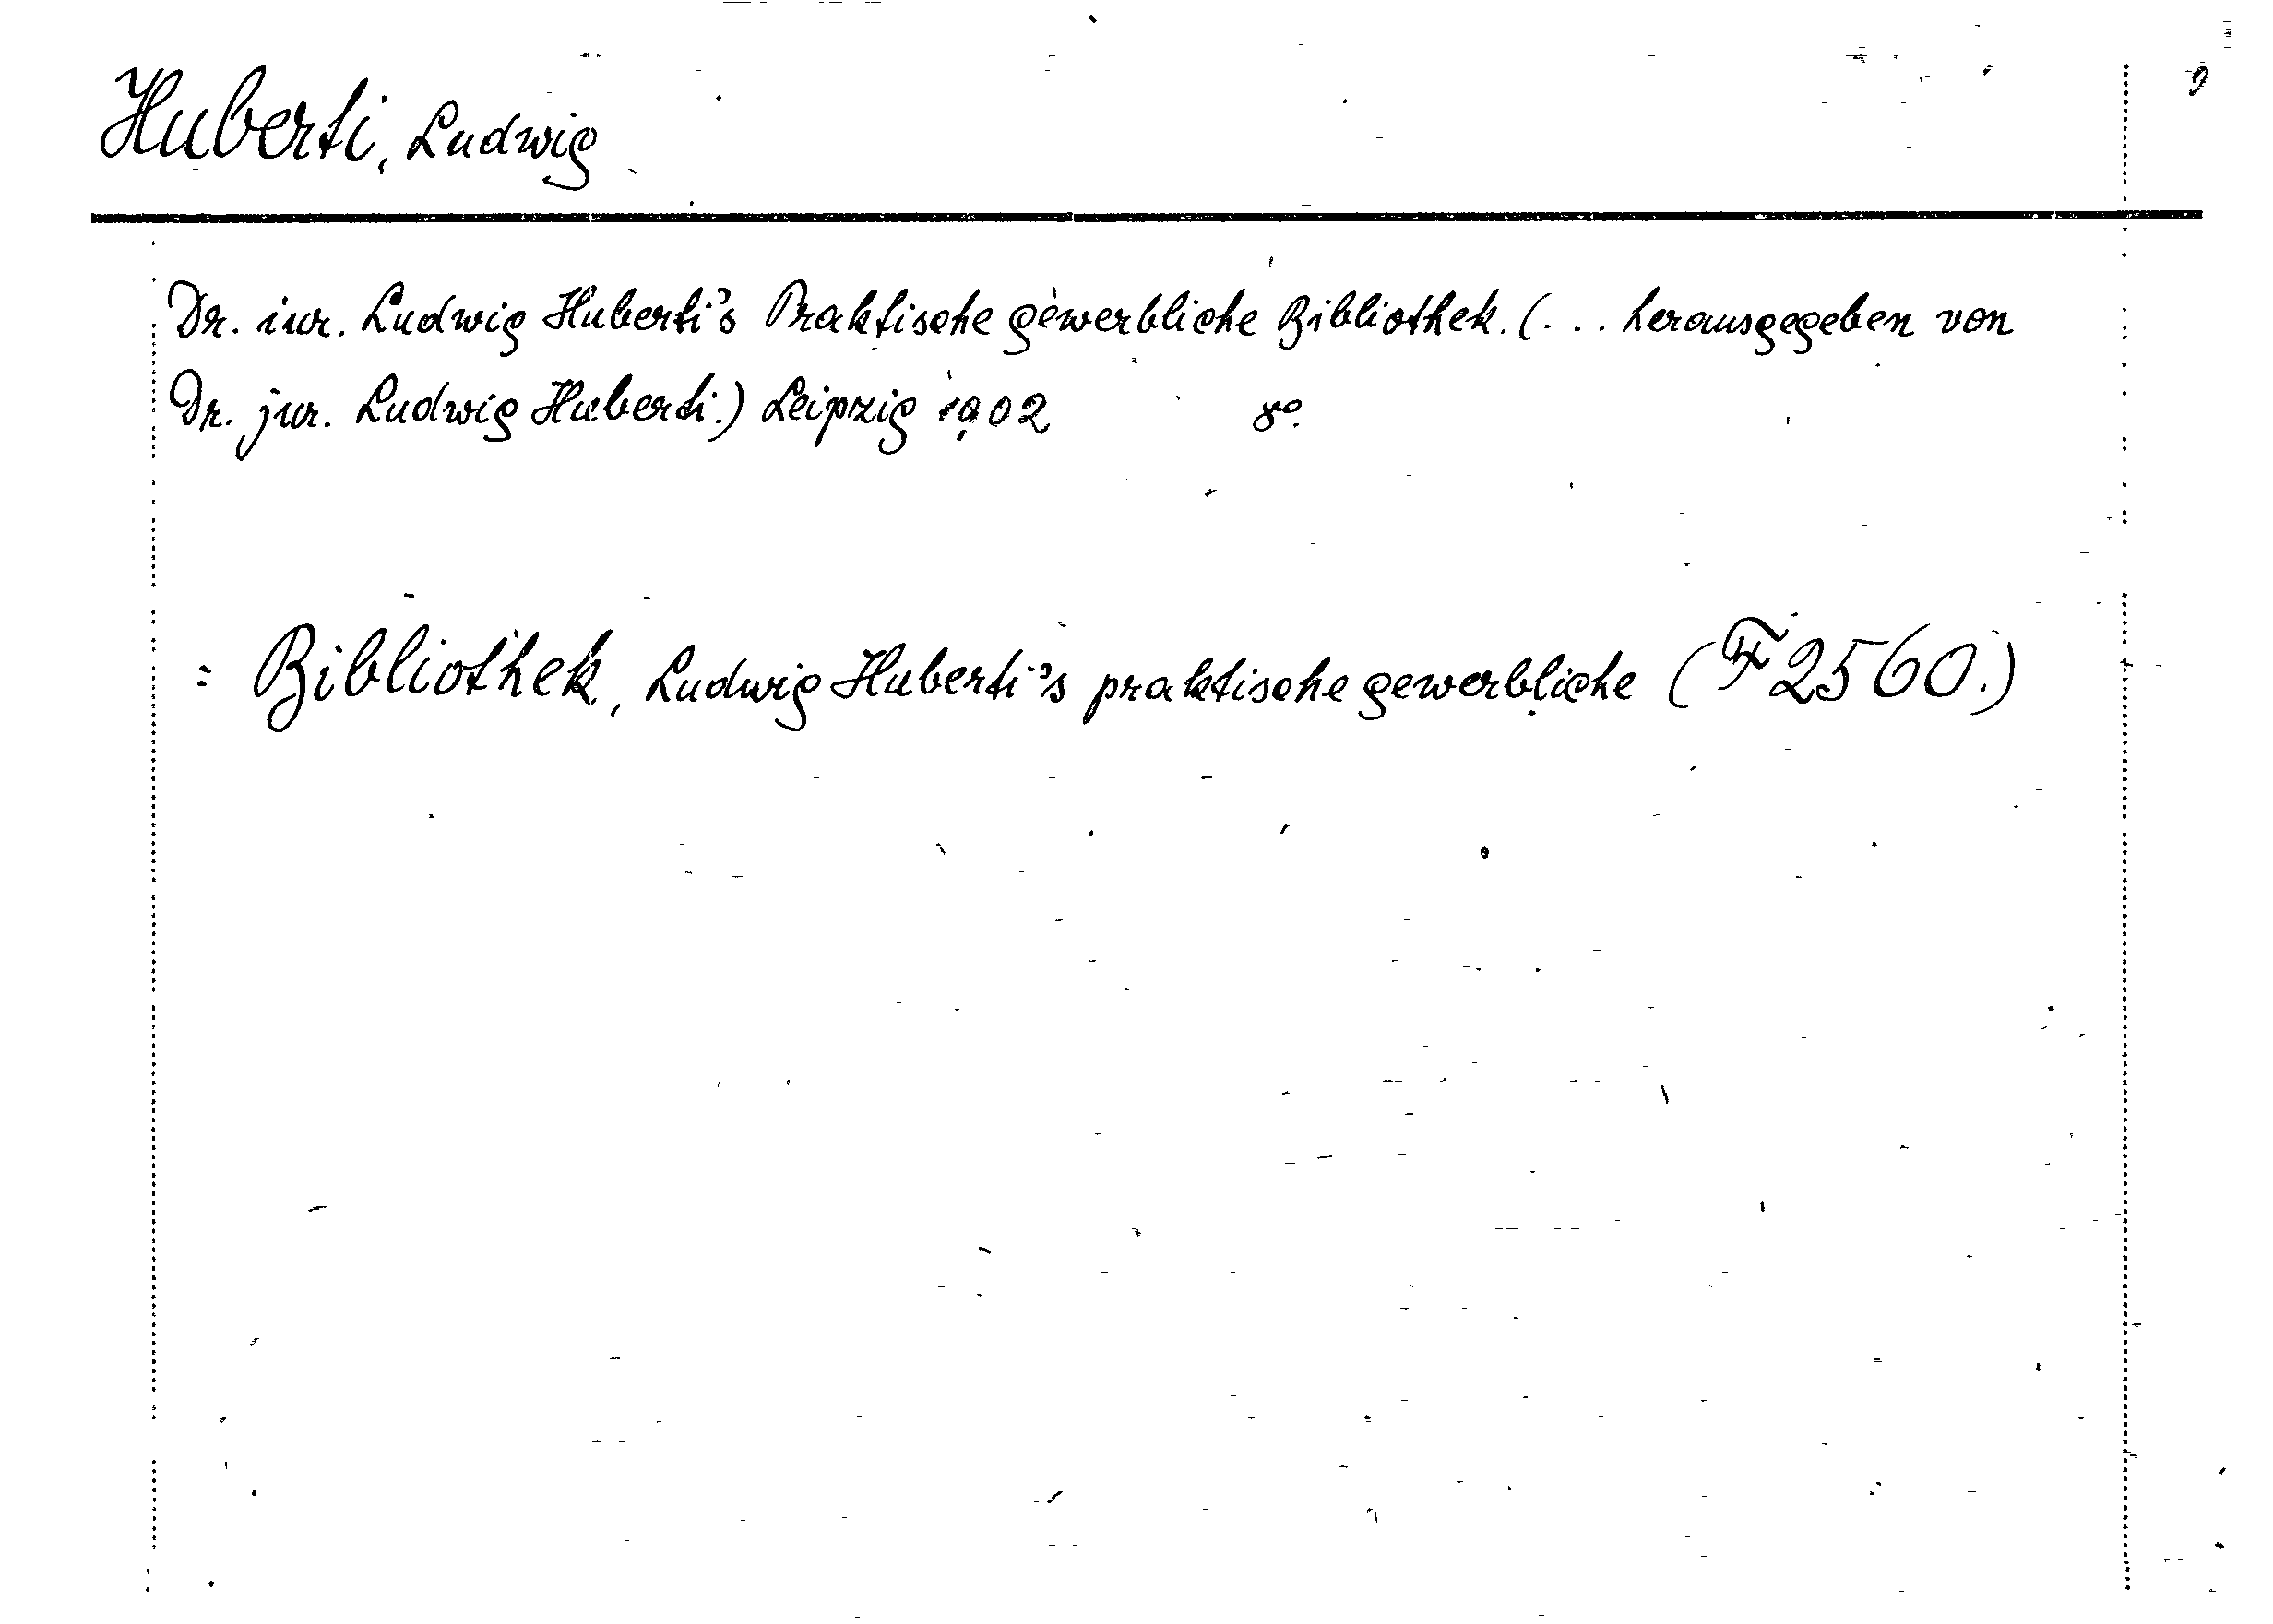 Huberti, Ludwig
Dr. iur. Ludwig Huberti's Praktische gewerbliche Bibliothek. (... herausgegeben von
Dr. jur. Ludwig Huberti.) Leipzig 1902 8°.
= Bibliothek, Ludwig Huberti's praktische gewerbliche (F 2560.)